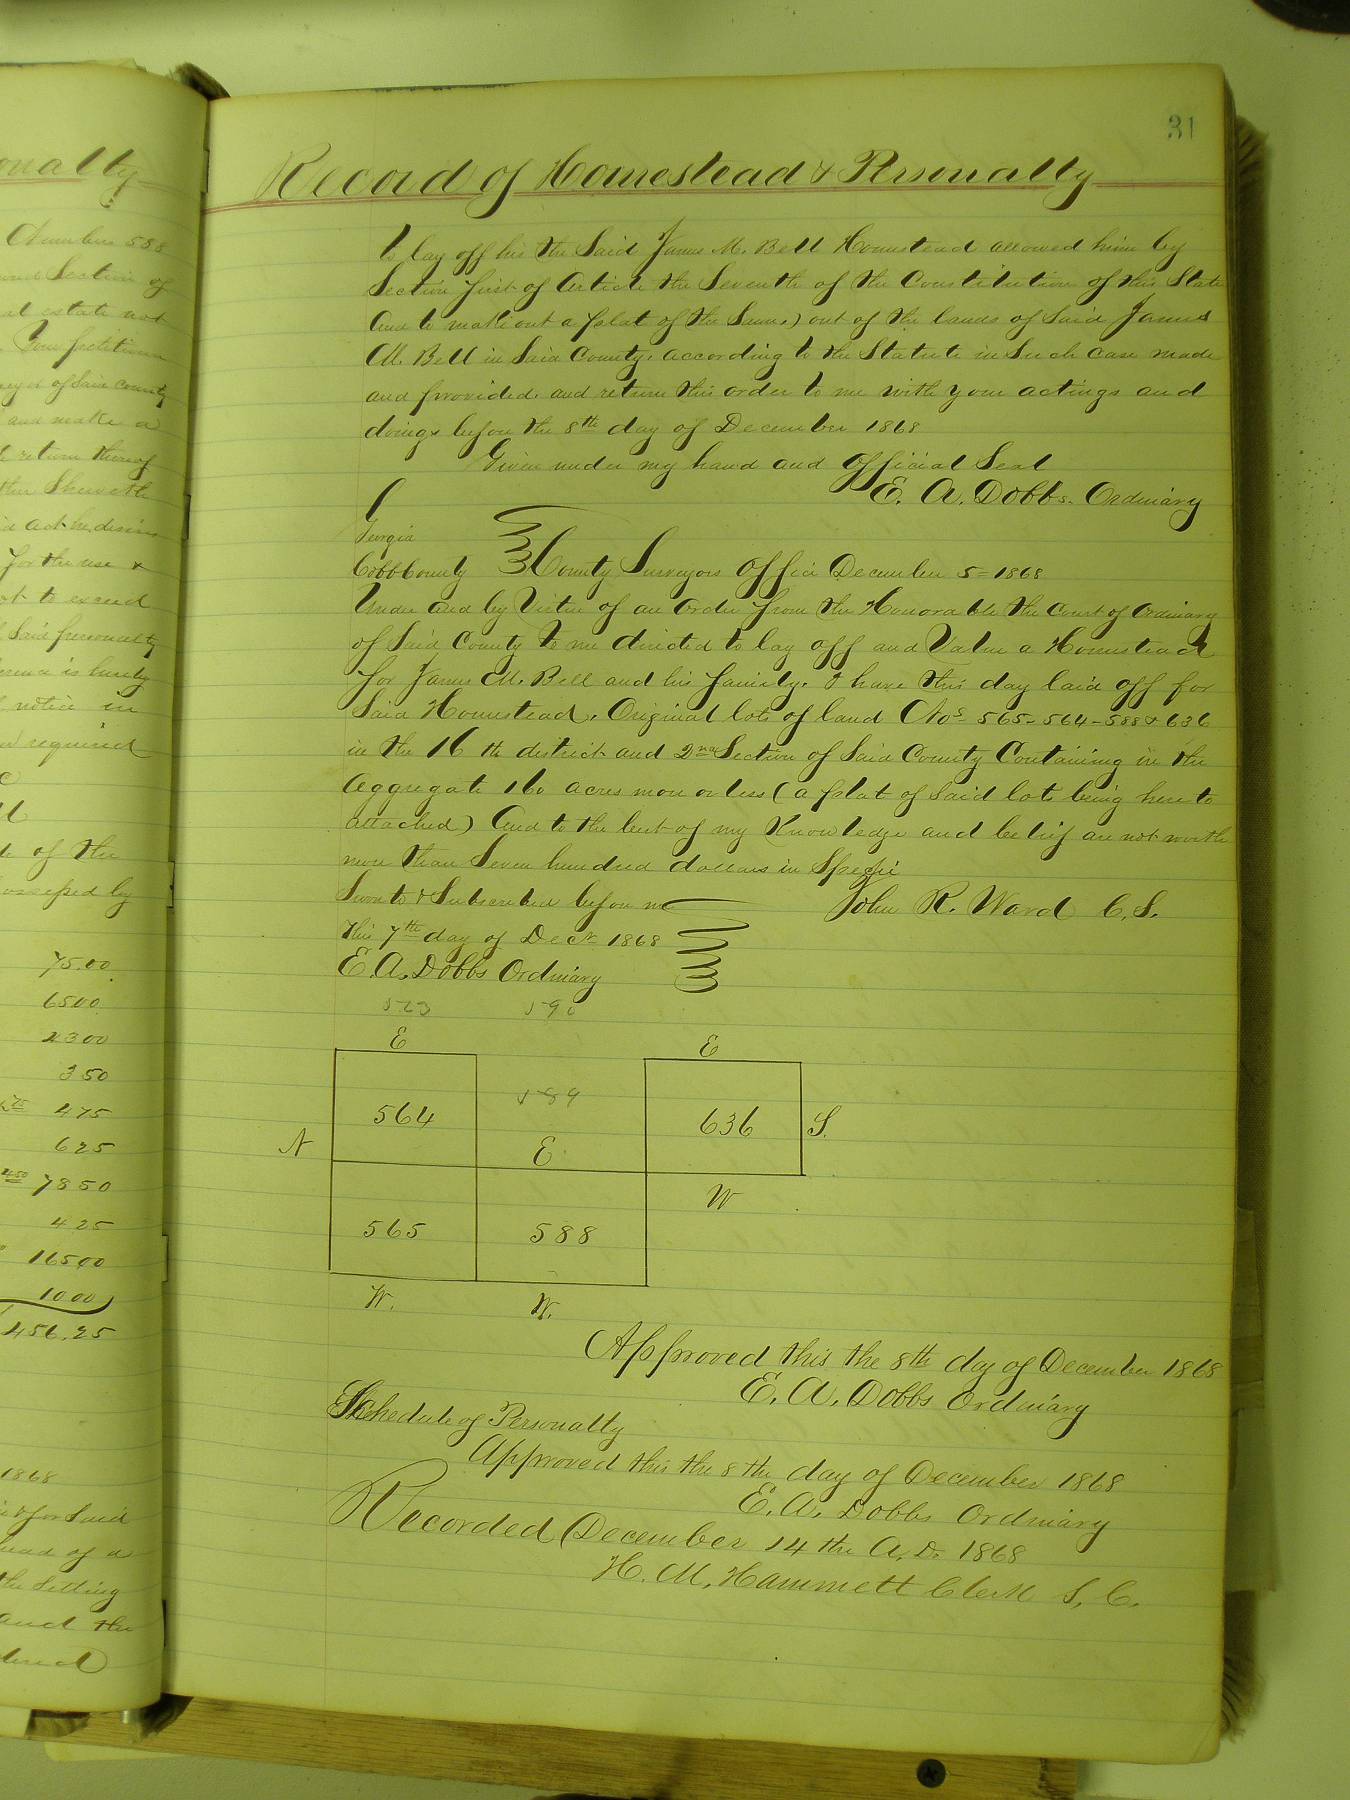 onalty
Number 588
and Section of
al estate not
Your petitioner
veyor of Said County
and make a
return thereof
for the use &
ct to exceed
Said personalty
is hereby
notice in
required
of the
ossessed by
75.00
6500
2300
350
475
625
7850
425
16500
1000
456.25
1868
for Said
head of a
the Setting
and the
31
Record of Homestead & Personalty
to lay off his the Said James M. Bell Homestead allowed him by
Section first of Article the Seventh of the Constitution of this State
And to make out a plat of the Same,) out of the lands of Said James
M. Bell in Said County, according to the Statute in Such case made
and provided, and return this order to me with your actings and
doings before the 8th day of December 1868
Given under my hand and official Seal
E. A. Dobbs. Ordinary
Georgia
Cobb County County Surveyors Office December 5 = 1868
Under and by Virtue of an order from the Honorable the Court of Ordinary
of Said County to me directed to lay off and Value a Homestead
for James M. Bell and his family. I have this day laid off for
Said Homestead, Original lots of land Nos 565 - 564 - 588 & 636
in the 16 th district and 2nd Section of Said County Containing in the
Aggregate 160 acres more or less (a plat of Said lots being here to
attached) And to the best of my Knowledge and belief are not worth
more than Seven hundred dollars in Specie
Sworn to & Subscribed before me John R. Ward C. S.
This 7th day of Decr 1868
E. A. Dobbs Ordinary
523 590
E E
564 589 636 S.
N E
W
565 588
W. W.
Approved this the 8th day of December 1868
E. A. Dobbs Ordinary
Schedule of Personalty
Approved this the 8 the day of December 1868
E. A. Dobbs Ordinary
Recorded December 14 the A. D. 1868
H. M. Hammett Clerk S. C.